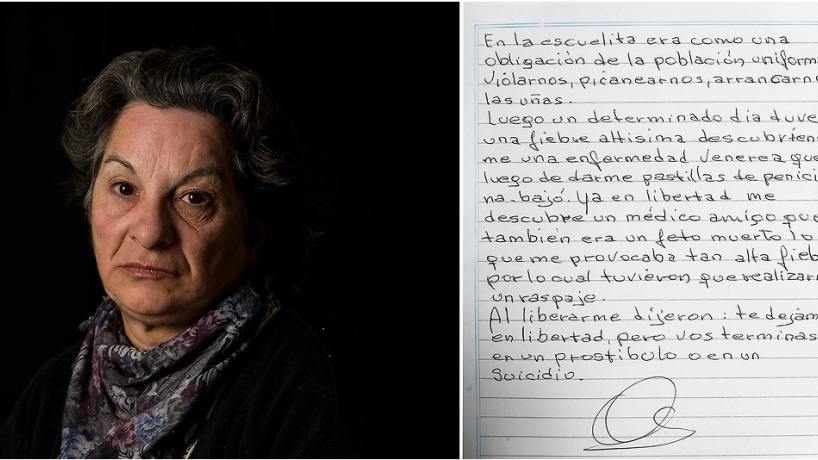 En la escuelita era como una
obligación de la población uniform
violarnos, picanearnos, arrancarn
las uñas.
Luego un determinado día tuve
una fiebre altisima descubrién
me una enfermedad venerea que
luego de darme pastillas de penici
na bajó. Ya en libertad me
descubre un médico amigo que
también era un feto muerto lo
que me provocaba tan alta fieb
por lo cual tuvieron que realizar
un raspaje.
Al liberarme dijeron: te dejam
en libertad, pero vos terminas
en un prostíbulo o en un
suicidio.